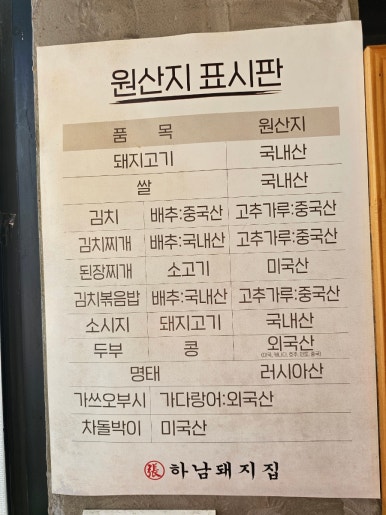 원산지 표시판
품 목 원산지
돼지고기 국내산
쌀 국내산
김치 배추:중국산 고추가루:중국산
김치찌개 배추:국내산 고추가루:중국산
된장찌개 소고기 미국산
김치볶음밥 배추:국내산 고추가루:중국산
소시지 돼지고기 국내산
두부 콩 외국산
명태 러시아산
가쓰오부시 가다랑어:외국산
차돌박이 미국산
張 하남돼지집